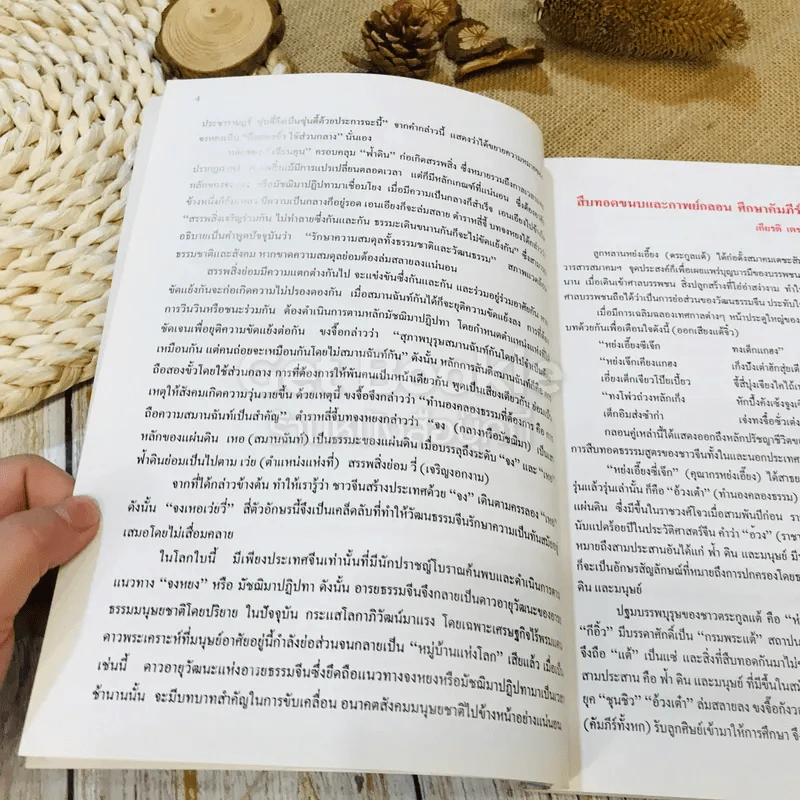 4
ประชาราษฎร์ ขุ่นดีจึงเป็นขุ่นดีด้วยประการฉะนี้” จากคำกล่าวนี้ แสดงว่าได้ขยายความหมายของ
จงหยงเป็น “ถือสองขั้ว ใช้ส่วนกลาง” นั่นเอง
ครอบคลุม “ฟ้าดิน” ก่อเกิดสรรพสิ่ง ซึ่งหมายรวมถึงกาลเวลาและ
มีการแปรเปลี่ยนตลอดเวลา แต่ก็มีหลักเกณฑ์ที่แน่นอน ซึ่งต้องอาศัย
หลักของจงหยง หรือมัชฌิมาปฏิปทามาเชื่อมโยง เมื่อมีความเป็นกลางก็สำเร็จ เอนเอียงไปข้าง
ข้างหนึ่งก็ล้มเหลว มีความเป็นกลางก็อยู่รอด เอนเอียงก็จะล่มสลาย ตำราหลี่จี้ บทจงหยงได้กล่าวว่า
“สรรพสิ่งเจริญร่วมกัน ไม่ทำลายซึ่งกันและกัน ธรรมะเดินขนานกันก็จะไม่ขัดแย้งกัน” ซึ่งสามารถ
อธิบายเป็นคำพูดปัจจุบันว่า “รักษาความสมดุลทั้งธรรมชาติและวัฒนธรรม” สภาพแวดล้อม
ธรรมชาติและสังคม หากขาดความสมดุลย่อมต้องล่มสลายลงแน่นอน
สรรพสิ่งย่อมมีความแตกต่างกันไป จะแข่งขันซึ่งกันและกัน และร่วมอยู่ร่วมอาศัยกัน
ขัดแย้งกันจะก่อเกิดความไม่ปรองดองกัน เมื่อสมานฉันท์กันได้ก็จะยุติความขัดแย้งลง การที่
การวินวินหรือชนะร่วมกัน ต้องดำเนินการตามหลักมัชฌิมาปฏิปทา โดยกำหนดตำแหน่งแห่งที่
ชัดเจนเพื่อยุติความขัดแย้งต่อกัน ขงจื๊อกล่าวว่า “สุภาพบุรุษสมานฉันท์กันโดยไม่จำเป็นต้อง
เหมือนกัน แต่คนถ่อยจะเหมือนกันโดยไม่สมานฉันท์กัน” ดังนั้น หลักการสันติสมานฉันท์ก็คือ การ
ถือสองขั้วโดยใช้ส่วนกลาง การที่ต้องการให้พันคนเป็นหน้าเดียวกัน พูดเป็นเสียงเดียวกัน ย่อมเป็น
เหตุให้สังคมเกิดความวุ่นวายขึ้น ด้วยเหตุนี้ ขงจื๊อจึงกล่าวว่า “ทำนองคลองธรรมที่ต้องการ คือ การ
ถือความสมานฉันท์เป็นสำคัญ” ตำราหลี่จี้บทจงหยงกล่าวว่า “จง (กลางหรือมัชฌิมา) เป็น
หลักของแผ่นดิน เหอ (สมานฉันท์) เป็นธรรมะของแผ่นดิน เมื่อบรรลุถึงระดับ “จง” และ “เหอ”
ฟ้าดินย่อมเป็นไปตาม เว่ย (ตำแหน่งแห่งที่) สรรพสิ่งย่อม วี่ (เจริญงอกงาม)
จากที่ได้กล่าวข้างต้น ทำให้เรารู้ว่า ชาวจีนสร้างประเทศด้วย “จง” เดินตามครรลอง “เหอ”
ดังนั้น “จงเหอเว่ยวี่” สี่ตัวอักษรนี้จึงเป็นเคล็ดลับที่ทำให้วัฒนธรรมจีนรักษาความเป็นทันสมัยอยู่
เสมอโดยไม่เสื่อมคลาย
ในโลกใบนี้ มีเพียงประเทศจีนเท่านั้นที่มีนักปราชญ์โบราณค้นพบและดำเนินการตาม
แนวทาง “จงหยง” หรือ มัชฌิมาปฏิปทา ดังนั้น อารยธรรมจีนจึงกลายเป็นดาวอายุวัฒนะของอารย
ธรรมมนุษยชาติโดยปริยาย ในปัจจุบัน กระแสโลกาภิวัฒน์มาแรง โดยเฉพาะเศรษฐกิจไร้พรมแดน
ดาวพระเคราะห์ที่มนุษย์อาศัยอยู่นี้กำลังย่อส่วนจนกลายเป็น “หมู่บ้านแห่งโลก” เสียแล้ว เมื่อเป็น
เช่นนี้ ดาวอายุวัฒนะแห่งอารยธรรมจีนซึ่งยึดถือแนวทางจงหยงหรือมัชฌิมาปฏิปทามาเป็นเวลา
ช้านานนั้น จะมีบทบาทสำคัญในการขับเคลื่อน อนาคตสังคมมนุษยชาติไปข้างหน้าอย่างแน่นอน
สืบทอดขนบและกาพย์กลอน ศึกษาคัมภีร์
เกียรติ เตช
ลูกหลานหย่งเอี้ยง (ตระกูลแต้) ได้ก่อตั้งสมาคมเตชะสัมพันธ์
วารสารสมาคมฯ จุดประสงค์ก็เพื่อเผยแพร่บุญบารมีของบรรพชน
นาน เมื่อเดินเข้าศาลบรรพชน สิ่งปลูกสร้างที่โอ่อ่าสง่างาม ทำให้
ศาลบรรพชนถือได้ว่าเป็นการย่อส่วนของวัฒนธรรมจีน ประทับใจ
เมื่อมีการเฉลิมฉลองเทศกาลต่างๆ หน้าประตูใหญ่ของ
บทด้วยกันเพื่อเตือนใจดังนี้ (ออกเสียงแต้จิ๋ว)
“หย่งเอี้ยงซีเจ็ก ทงเต็กแกฮง”
“หย่งเจ็กเคียงแกฮง
เอี่ยงเต็กเจียวโป๊ยเบี้ยว
“ทงโพ่วถ่วงหลักเก็ง
เต็กอิมส่งซำกำ
กลอนคู่เหล่านี้ได้แสดงออกถึงหลักปรัญาชีวิต
การสืบทอดธรรมสูตรของชาวจีนทั้งในและนอกประเทศ
“หย่งเอี้ยงซีเจ็ก” (คุณากรหย่งเอี้ยง) ได้สาธย
รุ่นแล้วรุ่นเล่านั้น ก็คือ “อ้วงเต๋า” (ทำนองคลองธรรม)
แผ่นดิน ซึ่งมีขึ้นในราชวงศ์โจวเมื่อสามพันปีก่อน
นับแปดร้อยปีในประวัติศาสตร์จีน คำว่า “อ้วง” (ราชา)
หมายถึงสามประสานอันได้แก่ ฟ้า ดิน และมนุษย์ มี
ก็จะเป็นอักษรสัญลักษณ์ที่หมายถึงการปกครองโดย
ดิน และมนุษย์
ปฐมบรรพบุรุษของชาวตระกูลแต้ คือ
“กีอิ้ว” มีบรรดาศักดิ์เป็น “กรมพระแต้” สถาปนา
จึงถือ “แต้” เป็นแซ่ และสิ่งที่สืบทอดกันมาไม่
สามประสาน คือ ฟ้า ดิน และมนุษย์ ที่มีขึ้นในสมัย
ยุค “ชุนชิว” “อ้วงเต๋า” ล่มสลายลง ขงจื๊อกังวล
(คัมภีร์ทั้งหก) รับลูกศิษย์เข้ามาให้การศึกษา จึง